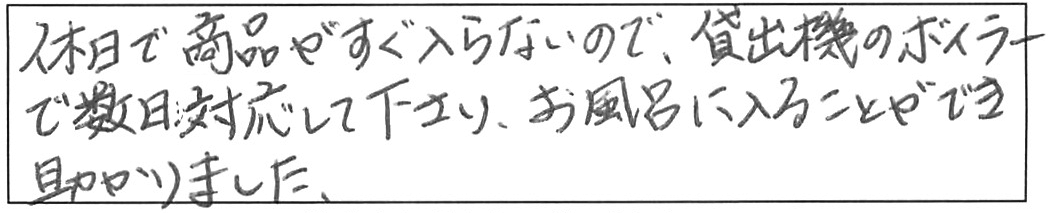 休日で商品がすぐ入らないので、貸出機のボイラー
で数日対応して下さり、お風呂に入ることができ
助かりました、